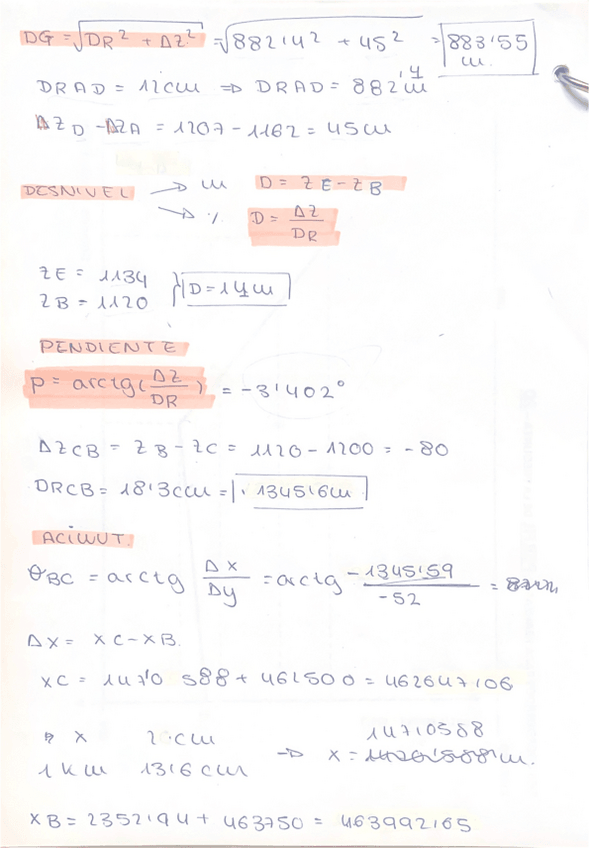 DG = √DR² + ΔZ² = √882'14² + 45² = 883'55 m.
DRAD = 12cm ⇒ DRAD = 882'4 m
ΔZD - ΔZA = 1207 - 1162 = 45m
DESNIVEL → m D = ZE - ZB
→ % D = ΔZ / DR
ZE = 1134
ZB = 1120 } D = 14m
PENDIENTE
P = arctg(ΔZ / DR) = -3'402°
ΔZCB = ZB - ZC = 1120 - 1200 = -80
DRCB = 18'3cm = 1345'6m
ACIMUT.
θBC = arctg Δx / Δy = arctg -1345'59 / -52 =
Δx = xC - xB.
xC = 1470'588 + 461500 = 462647'06
x 2cm
1 km 13'6 cm → x = 1470588 m.
xB = 2352'94 + 463750 = 463992'65